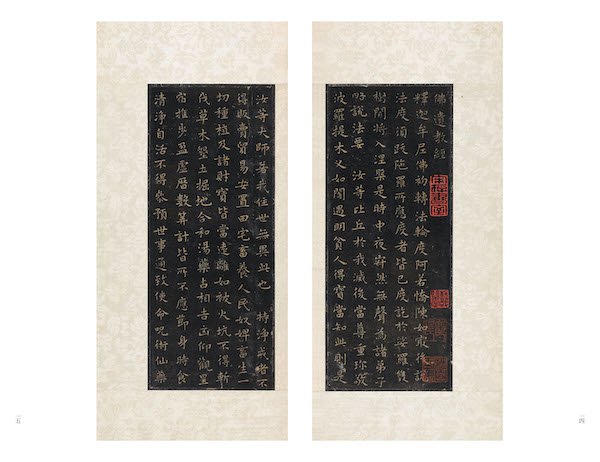 佛遺教經
釋迦牟尼佛初轉法輪度阿若憍陳如最後說
法度須跋陁羅所應度者皆已度訖於娑羅雙
樹間將入涅槃是時中夜寂然無聲為諸弟子
略說法要 汝等比丘於我滅後當尊重珍敬
波羅提木叉如闇遇明貧人得寶當知此則是
汝等大師若我住世無異此也 持淨戒者不
得販賣貿易安置田宅畜養人民奴婢畜生一
切種植及諸財寶皆當遠離如避火坑不得斬
伐草木墾土掘地合和湯藥占相吉凶仰觀星
宿推步盈虛曆數算計皆所不應節身時食
清淨自活不得參預世事通致使命呪術仙藥